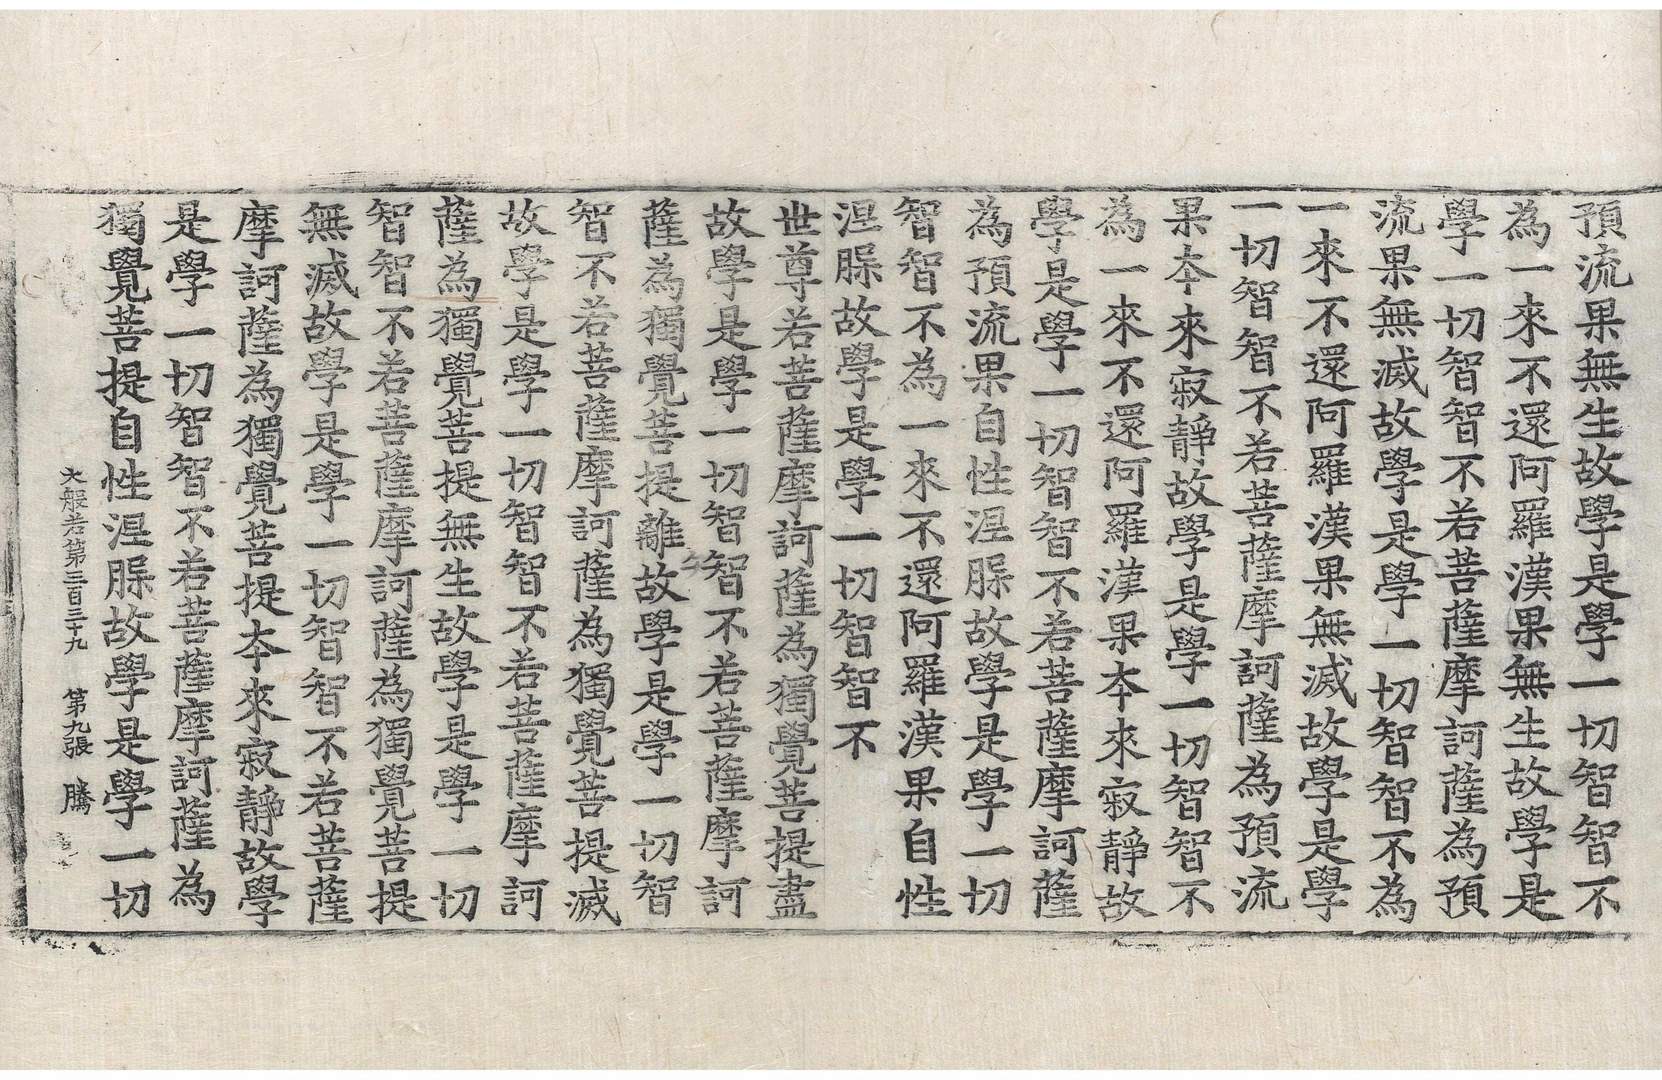 預流果無生故學是學一切智智不
為一來不還阿羅漢果無生故學是
學一切智智不若菩薩摩訶薩為預
流果無滅故學是學一切智智不為
一來不還阿羅漢果無滅故學是學
一切智智不若菩薩摩訶薩為預流
果夲來寂靜故學是學一切智智不
為一來不還阿羅漢果夲來寂靜故
學是學一切智智不若菩薩摩訶薩
為預流果自性涅槃故學是學一切
智智不為一來不還阿羅漢果自性
涅槃故學是學一切智智不
世尊若菩薩摩訶薩為獨覺菩提盡
故學是學一切智智不若菩薩摩訶
薩為獨覺菩提離故學是學一切智
智不若菩薩摩訶薩為獨覺菩提滅
故學是學一切智智不若菩薩摩訶
薩為獨覺菩提無生故學是學一切
智智不若菩薩摩訶薩為獨覺菩提
無滅故學是學一切智智不若菩薩
摩訶薩為獨覺菩提夲來寂靜故學
是學一切智智不若菩薩摩訶薩為
獨覺菩提自性涅槃故學是學一切
大般若第三百三十九 第九張 騰